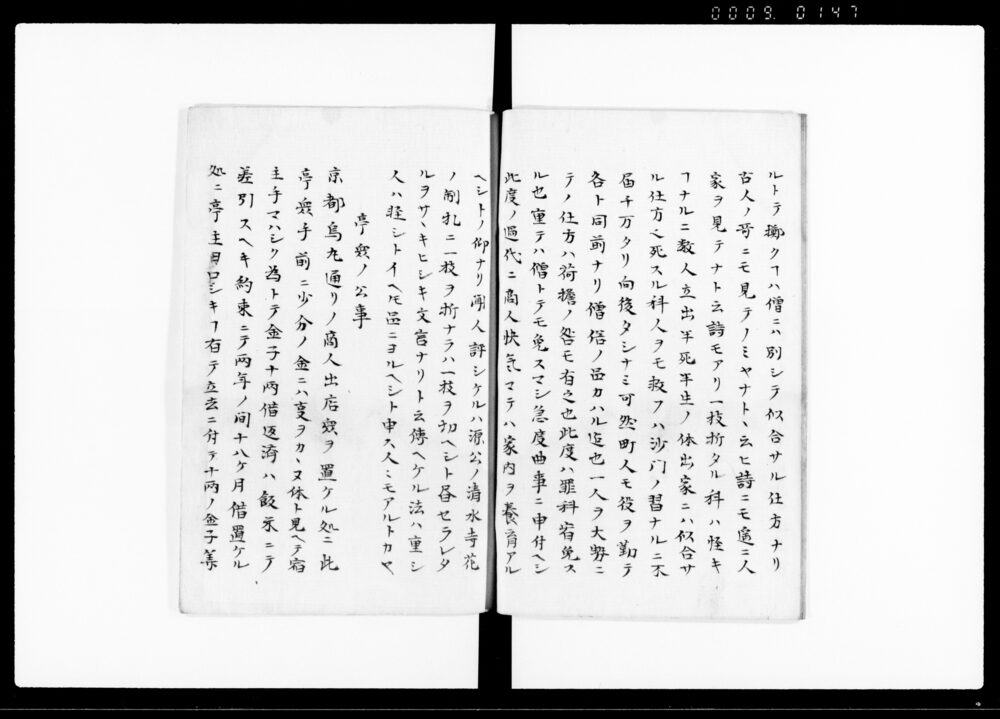 0009. 0147
ルトテ擲クヿハ僧ニハ別シテ似合サル仕方ナリ
古人ノ哥ニモ見テノミヤナト丶云ヒ詩ニモ遙ニ人
家ヲ見テナト云詩モアリ一枝折タル科ハ怪キ
ヿナルニ数人立出半死半生ノ体出家ニハ似合サ
ル仕方也死スル科人ヲモ救フハ沙门ノ習ナルニ不
届千万タリ向後タシナミ可然町人モ役ヲ勤テ
各ト同前ナリ僧俗ノ品カハル迄也一人ヲ大勢ニ
テノ仕方ハ荷擔ノ咎モ有之也此度ハ罪科宥免ス
ル也重テハ僧トテモ免スマシ急度曲事ニ申付ヘシ
此度ノ過代ニ商人快気マテハ家内ヲ養育アル
ヘシトノ仰ナリ聞人評シケルハ源公ノ清水寺花
ノ制札ニ一枝ヲ折ナラハ一枝ヲ切ヘシト昼セラレタ
ルヲサヽキヒシキ文言ナリト云傳ヘケル法ハ重シ
人ハ軽シトイヘ𪜈品ニヨルヘシト申ス人ミモアルトカヤ
亭ノ公事
京都烏丸通リノ商人出店ヲ置ケル処ニ此
亭手前ニ少分ノ金ニハ事ヲカヽヌ体ト見ヘテ宿
主手マハシク為トテ金子十両借返済ハ飯米ニテ
差引スヘキ約束ニテ両年ノ间十八ケ月借置ケル
処ニ亭主目口シキヿ有テ立去ニ付テ十両ノ金子算